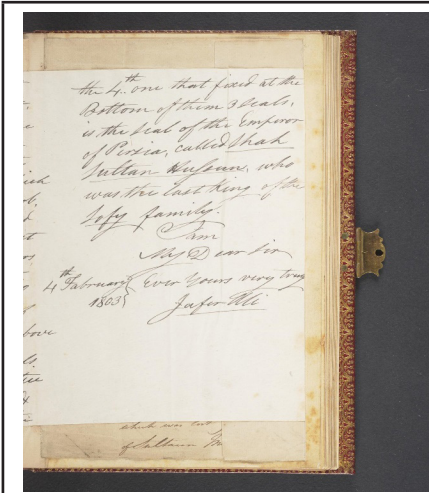 the 4.th one that fixed at the
Bottom of them 3 Seals,
is the Seal of the Emperor
of Persia, called Shah
Sultan Hussein, who
was the Last King of the
Sofy family.
I am
My Dear Sir
4th February 1803
Ever Yours very truly
Jafer Ali
which was
of Sultaun